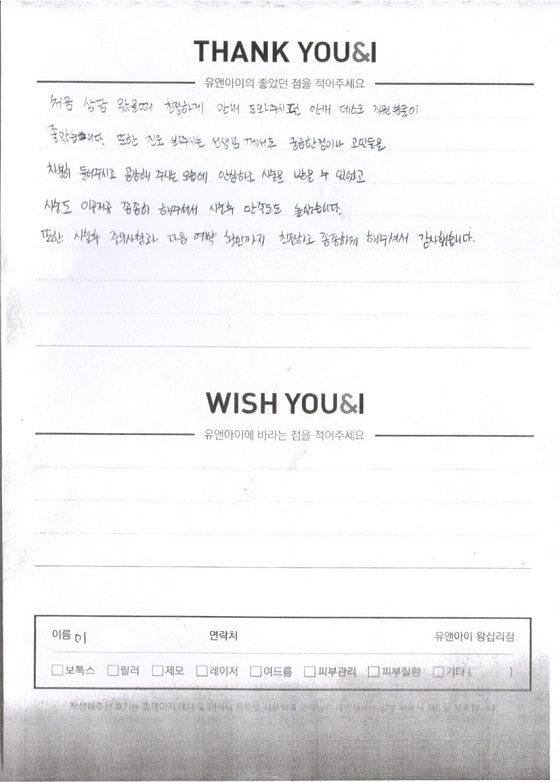 THANK YOU&I
유앤아이의 좋았던 점을 적어주세요
처음 상담 왔을때 친절하게 안내 도와주시던 안내 데스크 직원분들이
좋았습니다. 또한 진료 봐주시는 선생님 께서도 궁금한점이나 고민들을
차분히 들어주시고 공감해 주시는 모습에 안심하고 시술을 받을 수 있었고
시술도 꼼꼼히 해주셔서 시술후 만족도도 높았습니다.
또한 시술후 주의사항과 다음 예약 확인까지 친절하고 꼼꼼하게 해주셔서 감사했습니다.
WISH YOU&I
유앤아이에 바라는 점을 적어주세요
이름 이 연락처 유앤아이 왕십리점
보톡스 필러 제모 레이저 여드름 피부관리 피부질환 기타 ( )